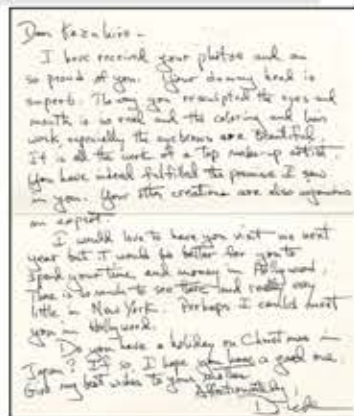 Dear Kazuhiro -
I have received your photos and am
so proud of you. Your dummy head is
superb. The way you resculpted the eyes and
mouth is so real and the coloring and hair
work especially the eyebrows are beautiful.
It is all the work of a top make-up artist.
You have indeed fulfilled the promise I saw
in you. Your other creations are also
an expert.
I would love to have you visit me next
year but it would be better for you to
spend your time and money in Hollywood.
There is so much to see there and really very
little in New York. Perhaps I could meet
you in Hollywood.
Do you have a holiday on Christmas in
Japan? If so, I hope you have a good one.
Give my best wishes to your
Affectionately,
Dick